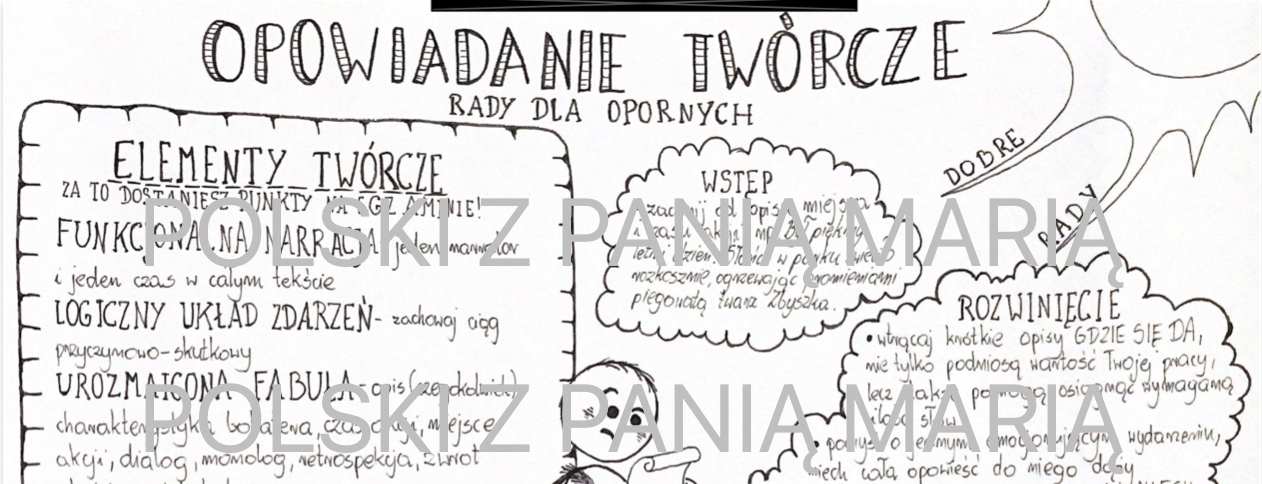 OPOWIADANIE TWÓRCZE
RADY DLA OPORNYCH
ELEMENTY TWÓRCZE
ZA TO DOSTANIESZ PUNKTY NA EGZAMINIE!
FUNKCJONALNA NARRACJA - jeden narrator
i jeden czas w całym tekście
LOGICZNY UKŁAD ZDARZEŃ - zachowaj ciąg
przyczynowo-skutkowy
UROZMAICONA FABUŁA - opis (czegokolwiek),
charakterystyka bohatera, czas akcji, miejsce
akcji, dialog, monolog, retrospekcja, zwrot
WSTĘP
zacznij od opisu miejsca
i czasu akcji, np. Był piękny,
letni dzień. Słońce w parku świeciło
rozkosznie, ogrzewając promieniami
piegowatą twarz Zbyszka.
DOBRE
RADY
ROZWINIĘCIE
• wtrącaj krótkie opisy GDZIE SIĘ DA,
nie tylko podniosą wartość Twojej pracy,
lecz także pomogą osiągnąć wymaganą
ilość słów
• pomyśl o jednym emocjonującym wydarzeniu,
niech cała opowieść do niego dąży
POLSKI Z PANIĄ MARIĄ
POLSKI Z PANIĄ MARIĄ